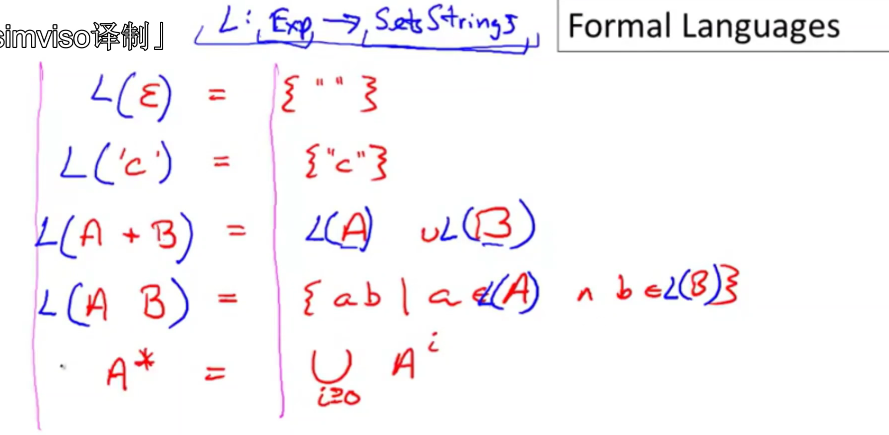 simviso译制」
L: Exp → Sets Strings
Formal Languages
L(ε) = { "" }
L('c') = {"c"}
L(A + B) = L(A) ∪ L(B)
L(A B) = { ab | a ∈ L(A) ∧ b ∈ L(B)}
A* = ⋃ i≥0 Aⁱ